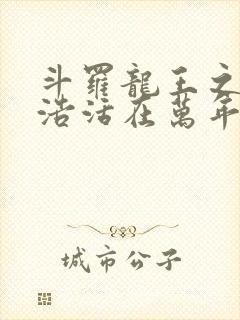 斗羅龍王之
浩活在萬年
城市公子